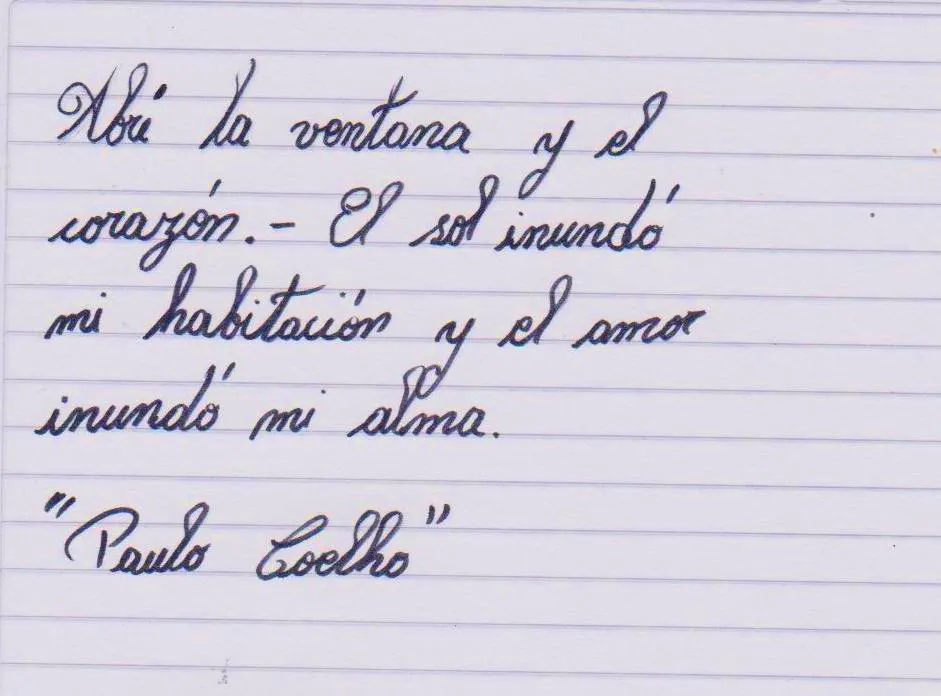 Abrí la ventana y el
corazón.- El sol inundó
mi habitación y el amor
inundó mi alma.
"Paulo Coelho"